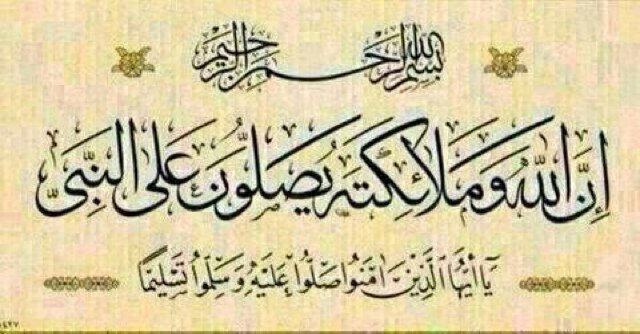 بسم الله الرحمن الرحيم
إِنَّ اللهَ وَمَلَائِكَتَهُ يُصَلُّونَ عَلَى النَّبِيِّ
يَا أَيُّهَا الَّذِينَ آمَنُوا صَلُّوا عَلَيْهِ وَسَلِّمُوا تَسْلِيمًا